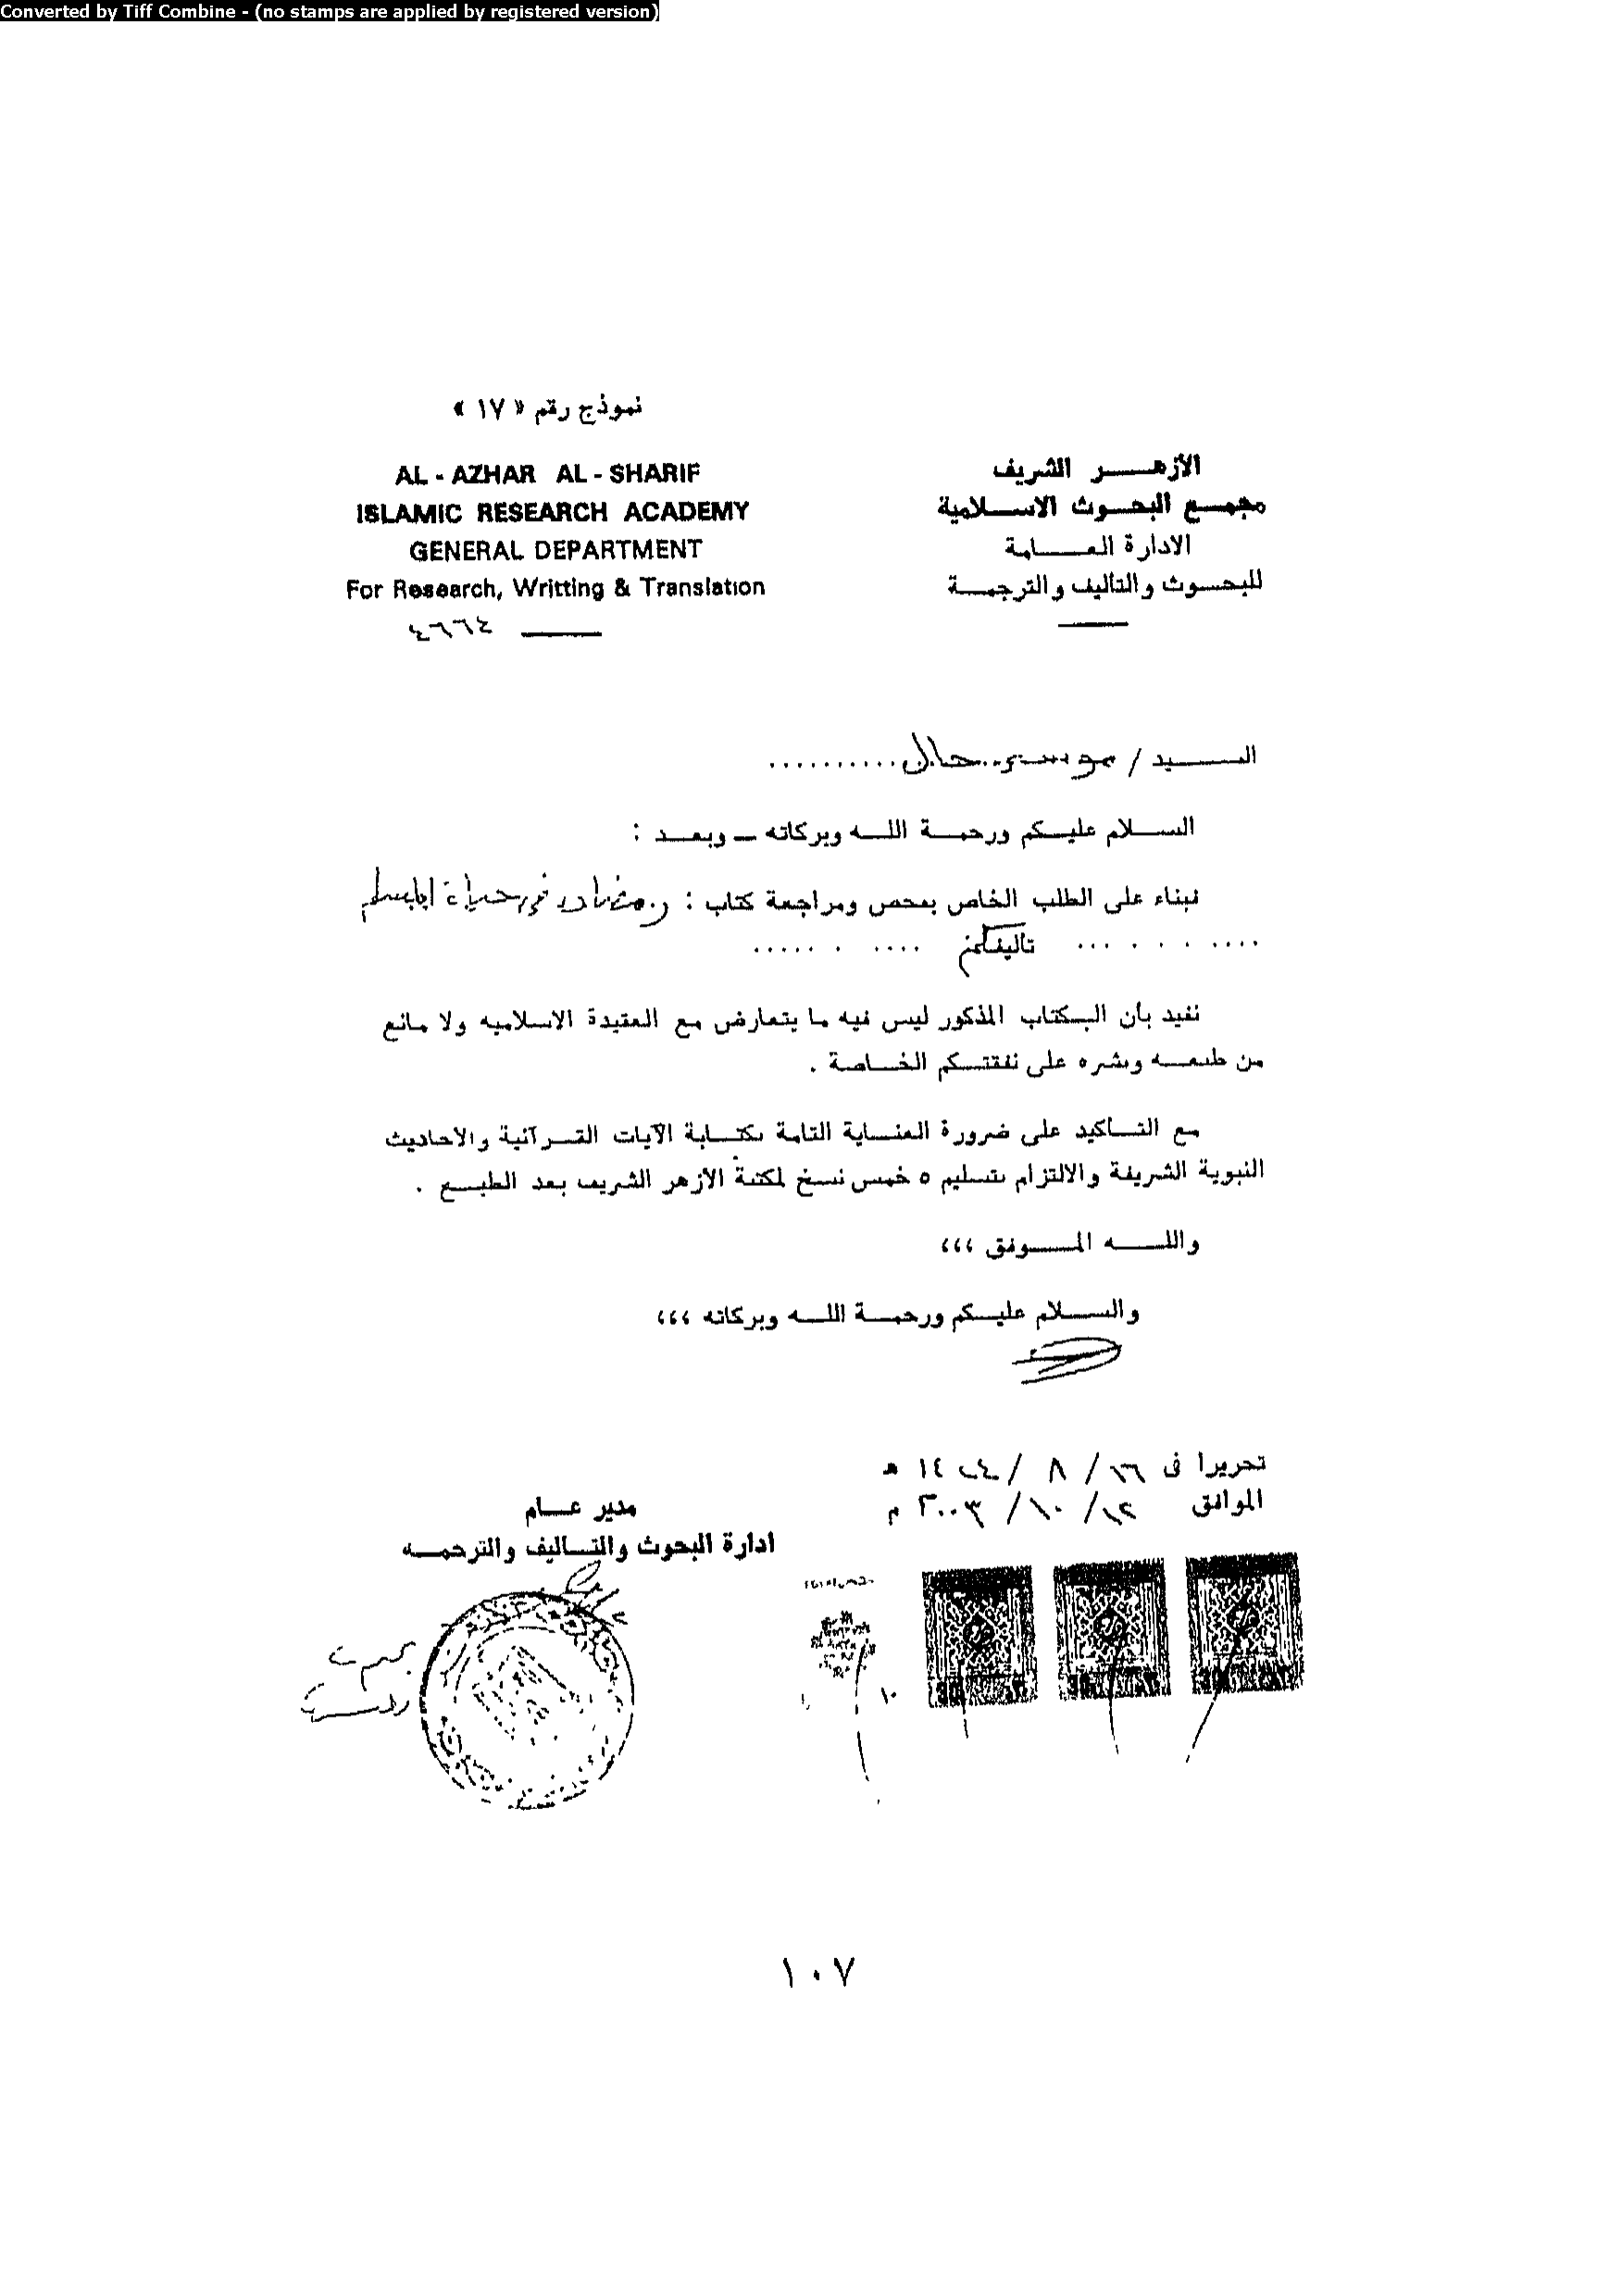 Converted by Tiff Combine - (no stamps are applied by registered version)
نموذج رقم « ١٧ »
الأزهـــر الشريف
مجمـع البحـوث الاسـلامية
الادارة العـــامة
للبحـــوث والتاليف والترجمـــة
AL - AZHAR AL - SHARIF
ISLAMIC RESEARCH ACADEMY
GENERAL DEPARTMENT
For Research, Writting & Translation
٤٦٦٤
الســـيد /
الســلام عليـكم ورحمـة اللـه وبركاته ــ وبعـد :
فبناء على الطلب الخاص بفحص ومراجعة كتاب : رمضان في حياة
تاليفكم
نفيد بأن الـكتاب المذكور ليس فيه ما يتعارض مع العقيدة الاسلاميه ولا مانع
من طبعـه ونشره على نفقتـكم الخـاصة .
مع التـاكيد على ضرورة العنـاية التامة بكتـابة الآيات القـرآنية والاحاديث
النبوية الشريفة والالتزام بتسليم ٥ خمس نسـخ لمكتبة الازهر الشريف بعد الطبـع .
واللــه المــوفق ،،،
والســلام عليـكم ورحمـة اللـه وبركاته ،،،
تحريرا فى ١٦ / ٨ / ١٤٢٤ هـ
الموافق ١٢ / ١٠ / ٢٠٠٣ م
مدير عـــام
ادارة البحوث والتـاليف والترجمـه
١٠
١٠٧